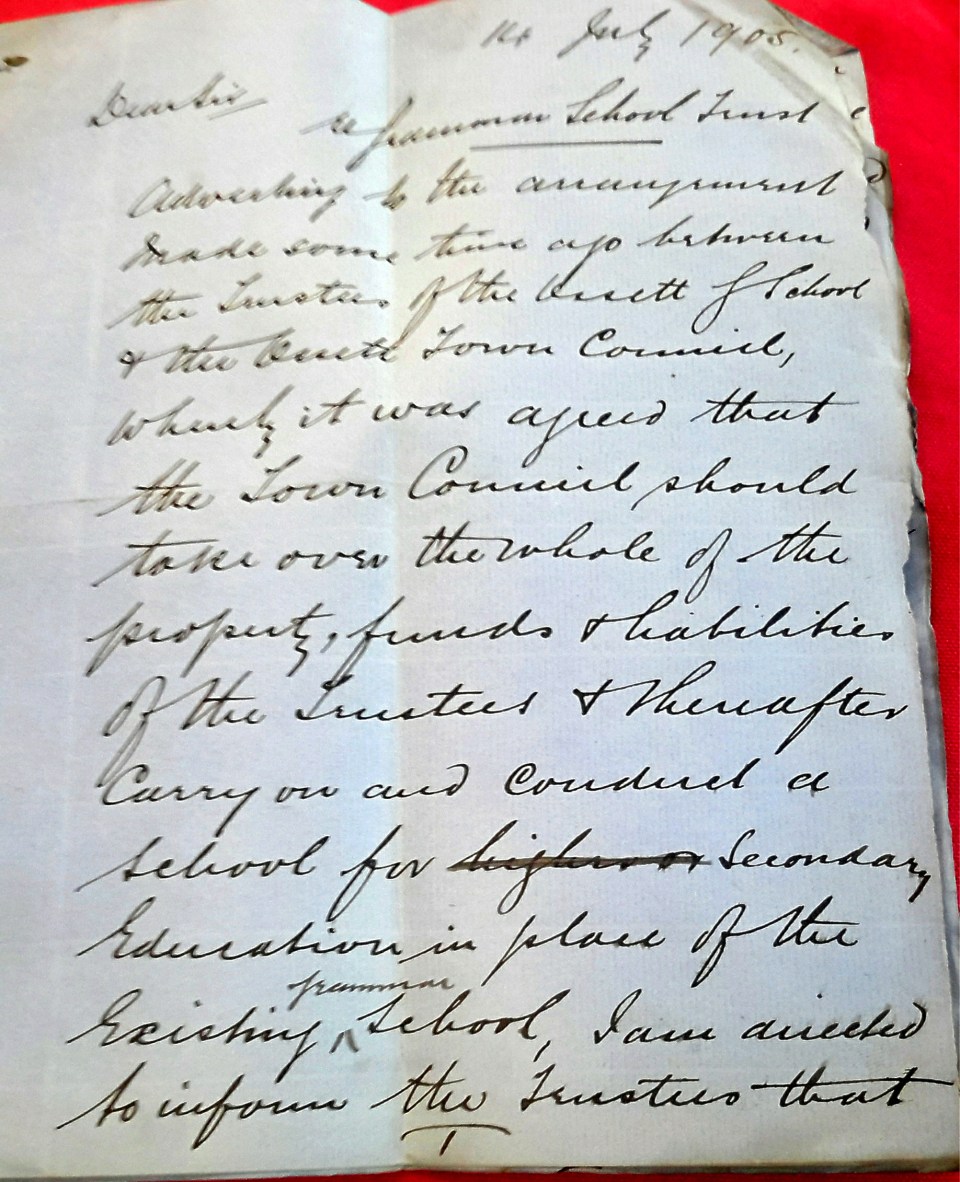 14 July 1905.
Dear Sir
re Grammar School Trust
Adverting to the arrangement
made some time ago between
the Trustees of the Ossett G School
& the Ossett Town Council,
whereby it was agreed that
the Town Council should
take over the whole of the
property, funds & liabilities
of the Trustees & thereafter
Carry on and conduct a
School for higher or Secondary
Education in place of the
grammar
Existing School, I am directed
to inform the Trustees that
1